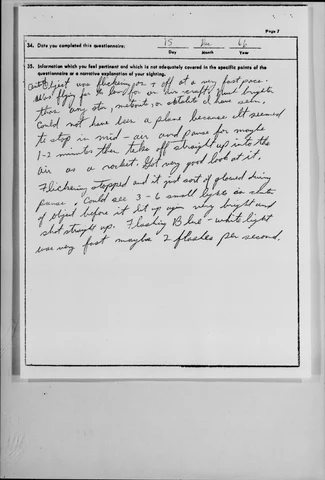 Page 7
34. Date you completed this questionnaire: 15 Dec 66
Day Month Year
35. Information which you feel pertinent and which is not adequately covered in the specific points of the
questionnaire or a narrative explanation of your sighting.
Object was flickering on + off at a very fast pace.
flying far too low for an aircraft. Much brighter
than any star, meteorite or satellite I have seen.
Could not have been a plane because it seemed
to stop in mid-air and pause for maybe
1-2 minutes then take off straight up into the
air as a rocket. Got very good look at it.
Flickering stopped and it just sort of glowed during
pause. Could see 3-6 small lights on
of object before it lit up again very bright and
shot straight up. Flashing Blue-white light
was very fast maybe 2 flashes per second.